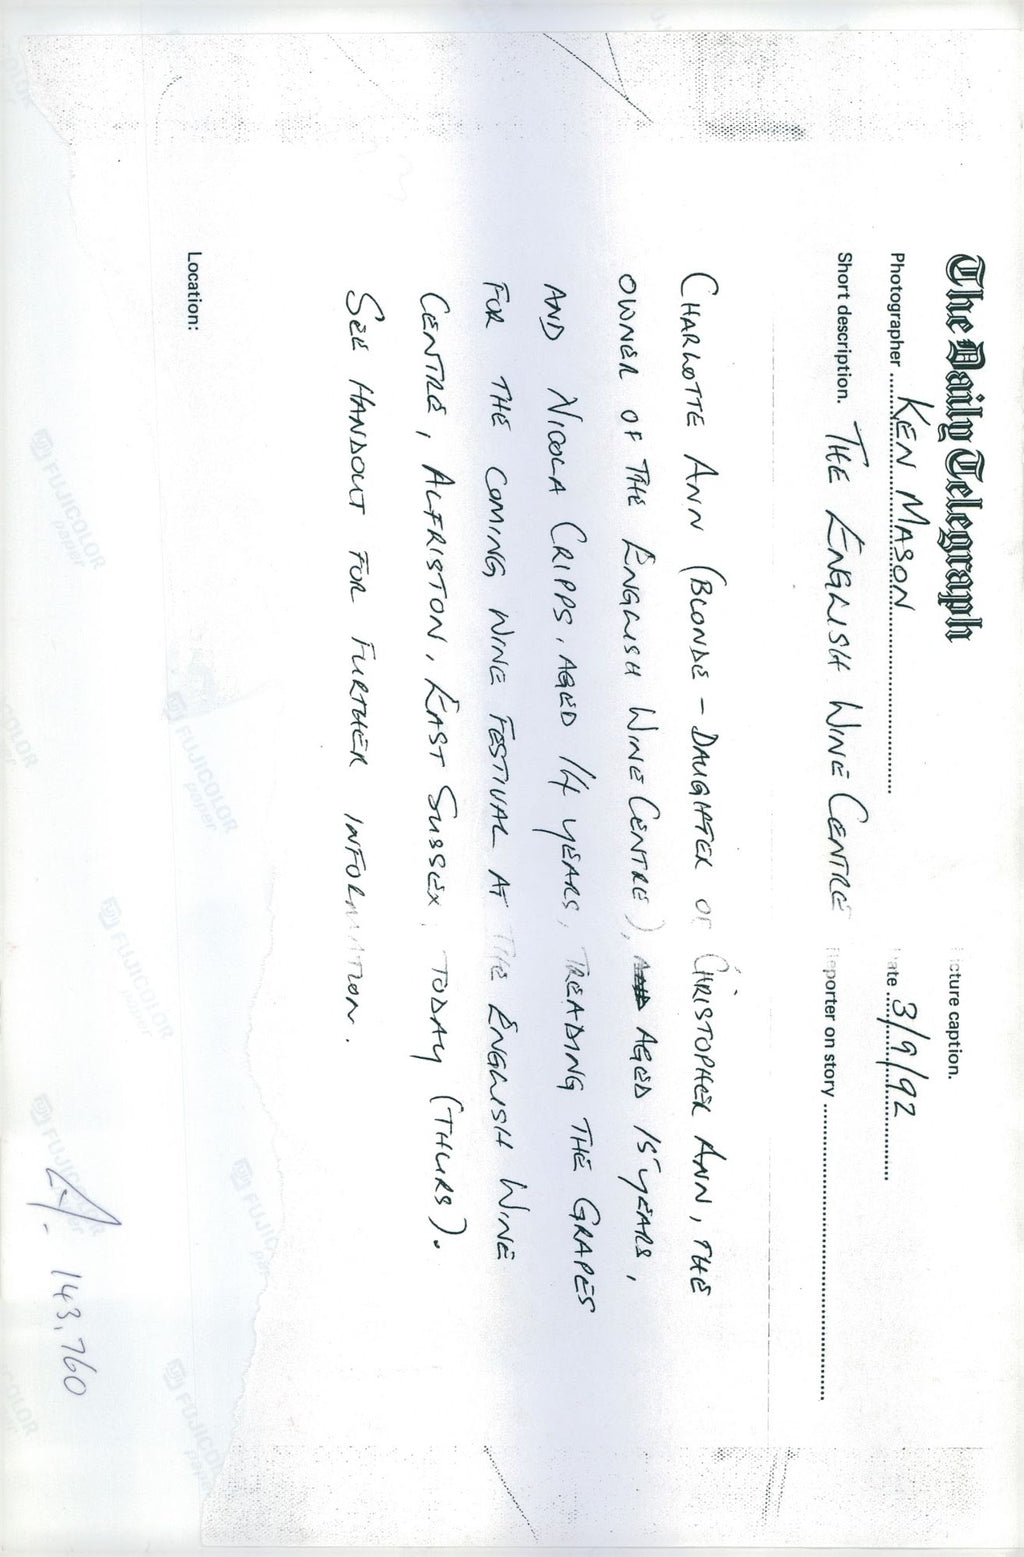 The Daily Telegraph
Picture caption.
Photographer KEN MASON
Date 3/9/92
Short description. THE ENGLISH WINE CENTRE
Reporter on story
CHARLOTTE ANN (BLONDE - DAUGHTER OF CHRISTOPHER ANN, THE
OWNER OF THE ENGLISH WINE CENTRE), AGED 15 YEARS,
AND NICOLA CRIPPS, AGED 14 YEARS, TREADING THE GRAPES
FOR THE COMING WINE FESTIVAL AT THE ENGLISH WINE
CENTRE, ALFRISTON, EAST SUSSEX, TODAY (THURS).
SEE HANDOUT FOR FURTHER INFORMATION.
Location:
143,760
FUJICOLOR
paper
FUJICOLOR
paper
FUJICOLOR
paper